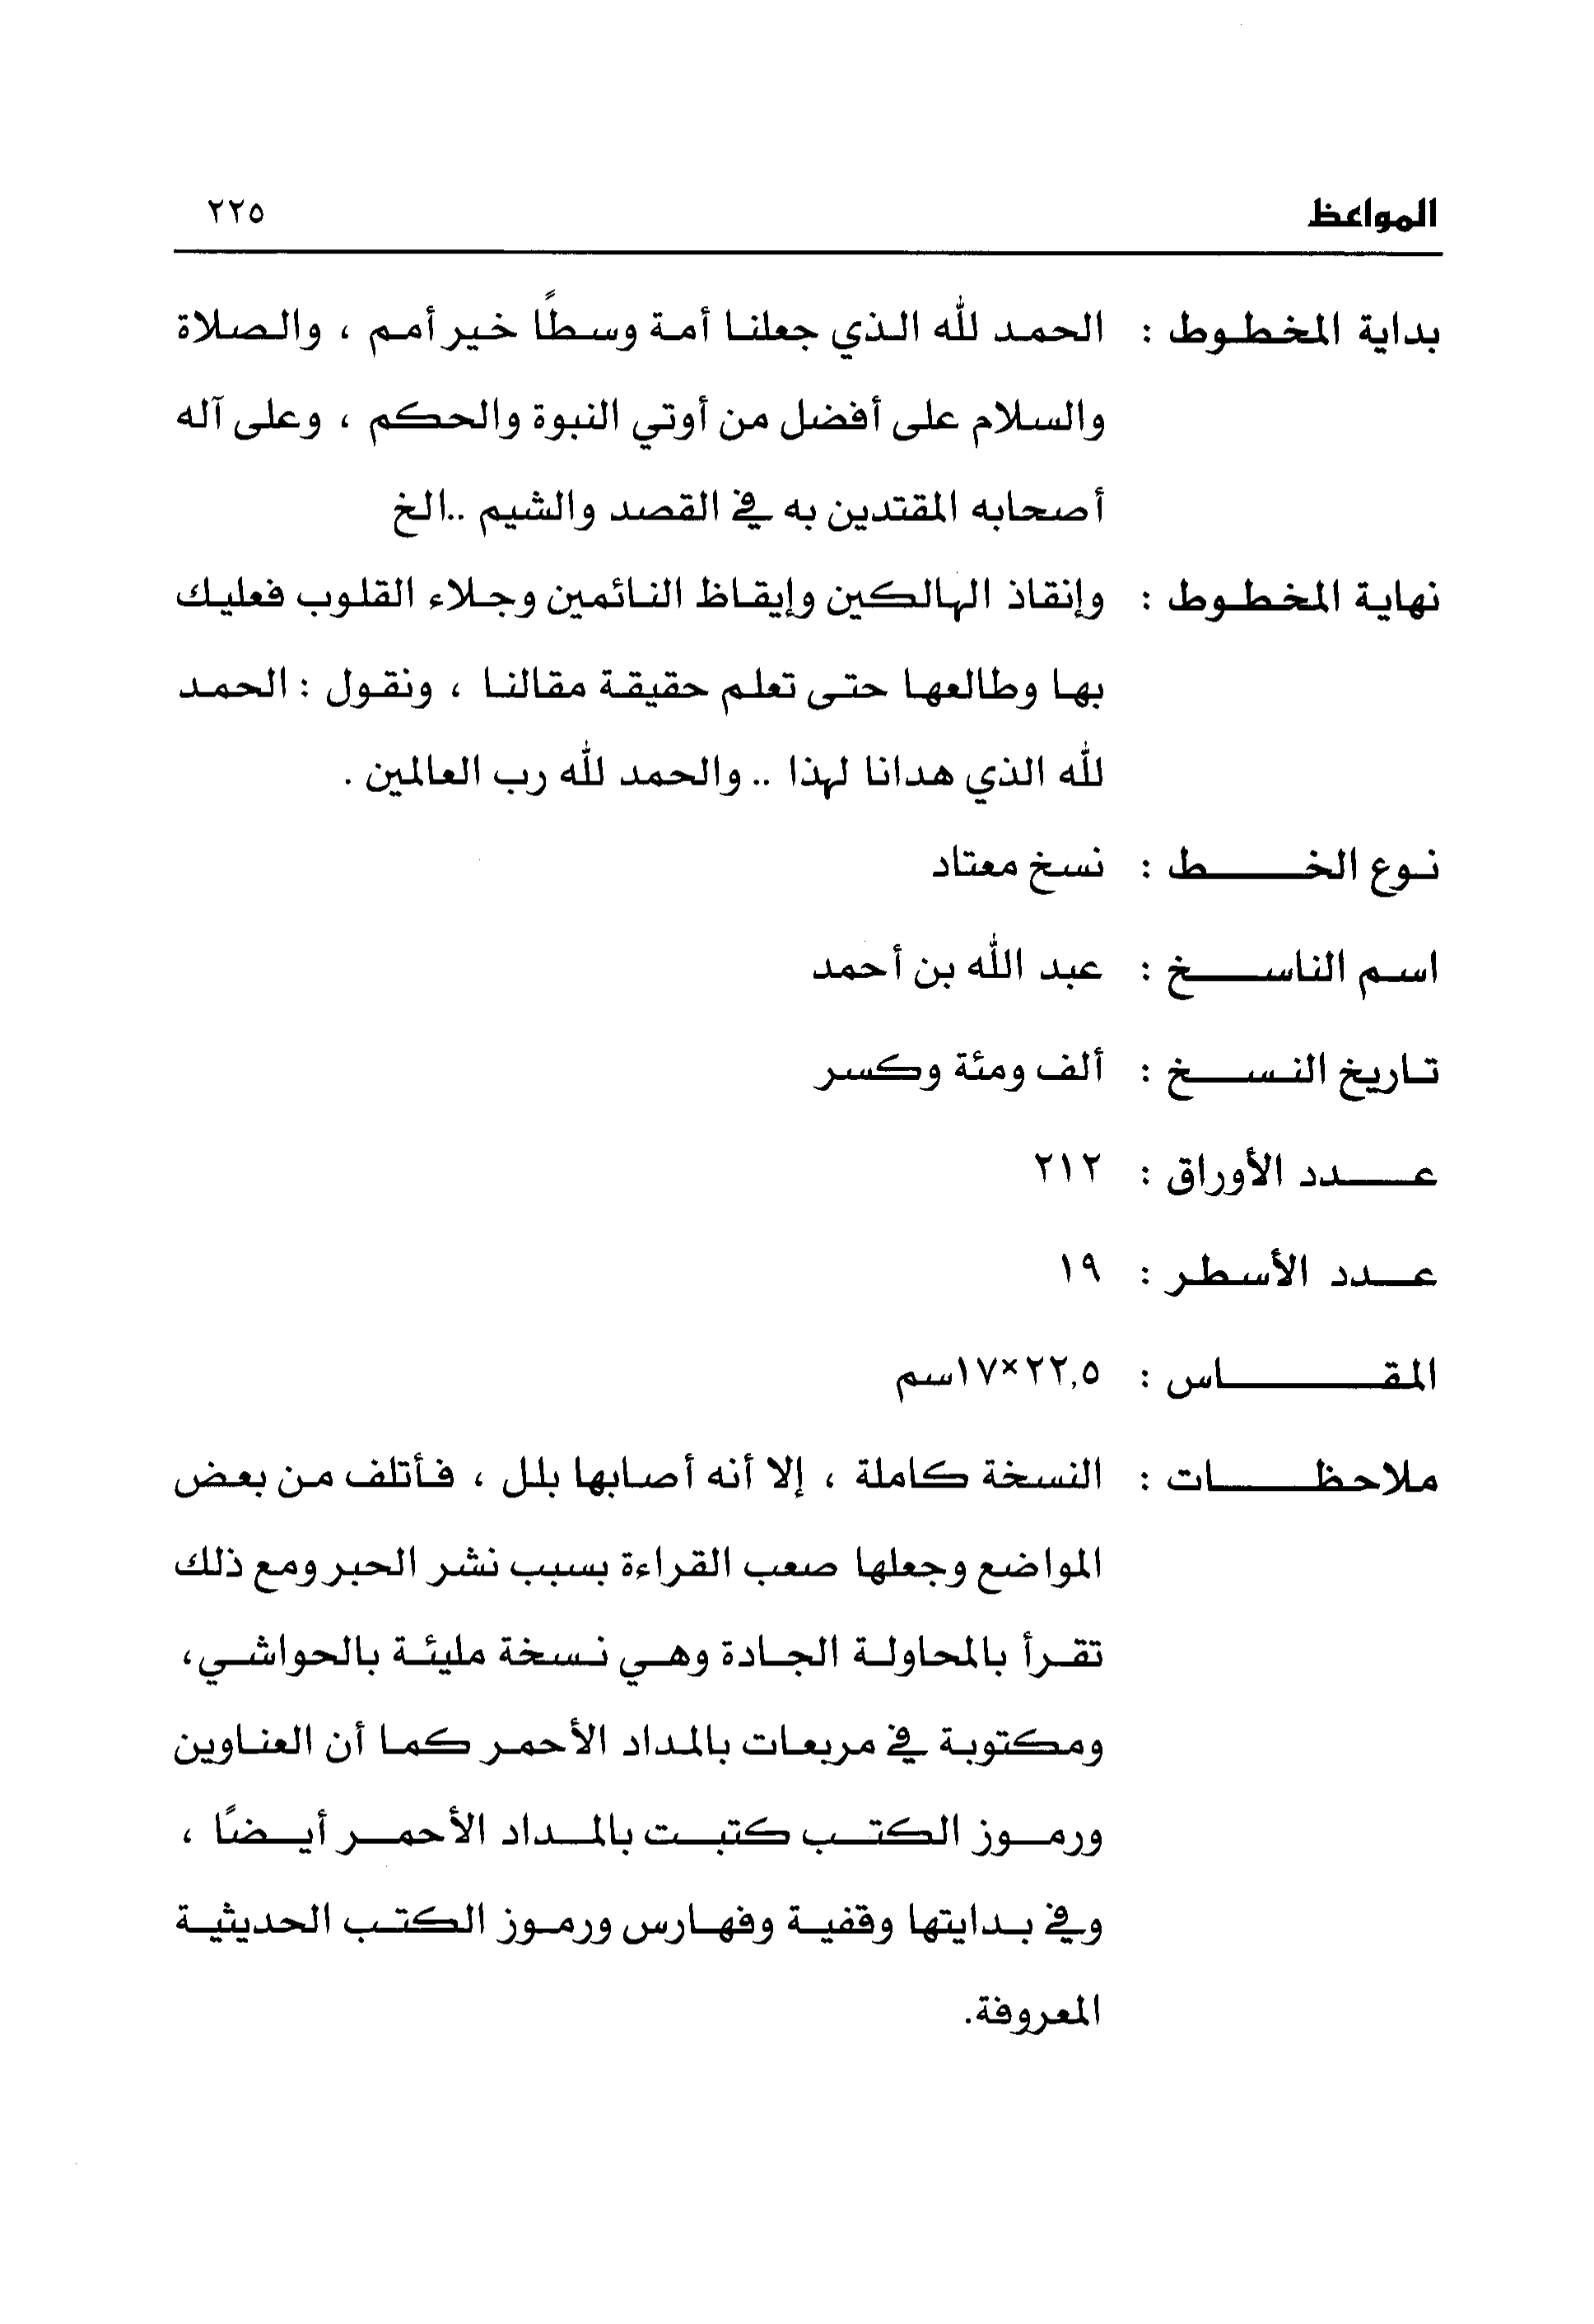 المواعظ ٢٢٥
بداية المخطوط : الحمد لله الذي جعلنا أمة وسطًا خير أمم ، والصلاة
والسلام على أفضل من أوتي النبوة والحكم ، وعلى آله
أصحابه المقتدين به في القصد والشيم ..الخ
نهاية المخطوط : وإنقاذ الهالكين وإيقاظ النائمين وجلاء القلوب فعليك
بها وطالعها حتى تعلم حقيقة مقالنا ، ونقول : الحمد
لله الذي هدانا لهذا .. والحمد لله رب العالمين .
نوع الخط : نسخ معتاد
اسم الناسخ : عبد الله بن أحمد
تاريخ النسخ : ألف ومئة وكسر
عدد الأوراق : ٢١٢
عدد الأسطر : ١٩
المقاس : ٢٢,٥×١٧سم
ملاحظات : النسخة كاملة ، إلا أنه أصابها بلل ، فأتلف من بعض
المواضع وجعلها صعب القراءة بسبب نشر الحبر ومع ذلك
تقرأ بالمحاولة الجادة وهي نسخة مليئة بالحواشي،
ومكتوبة في مربعات بالمداد الأحمر كما أن العناوين
ورموز الكتب كتبت بالمداد الأحمر أيضًا ،
وفي بدايتها وقفية وفهارس ورموز الكتب الحديثية
المعروفة.